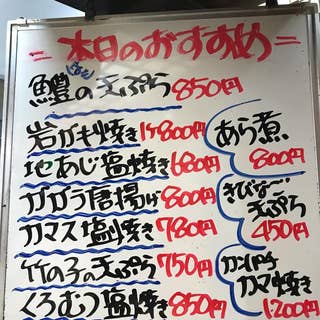 = 本日のおすすめ =
鱧の天ぷら 850円
岩ガキ焼き 1ケ800円
地あじ塩焼き 680円
ガガラ唐揚げ 800円
カマス塩焼き 780円
竹の子の天ぷら 750円
くろむつ塩焼き 850円
あら煮
800円
きびな〜
天ぷら
450円
カマ焼き
1200円